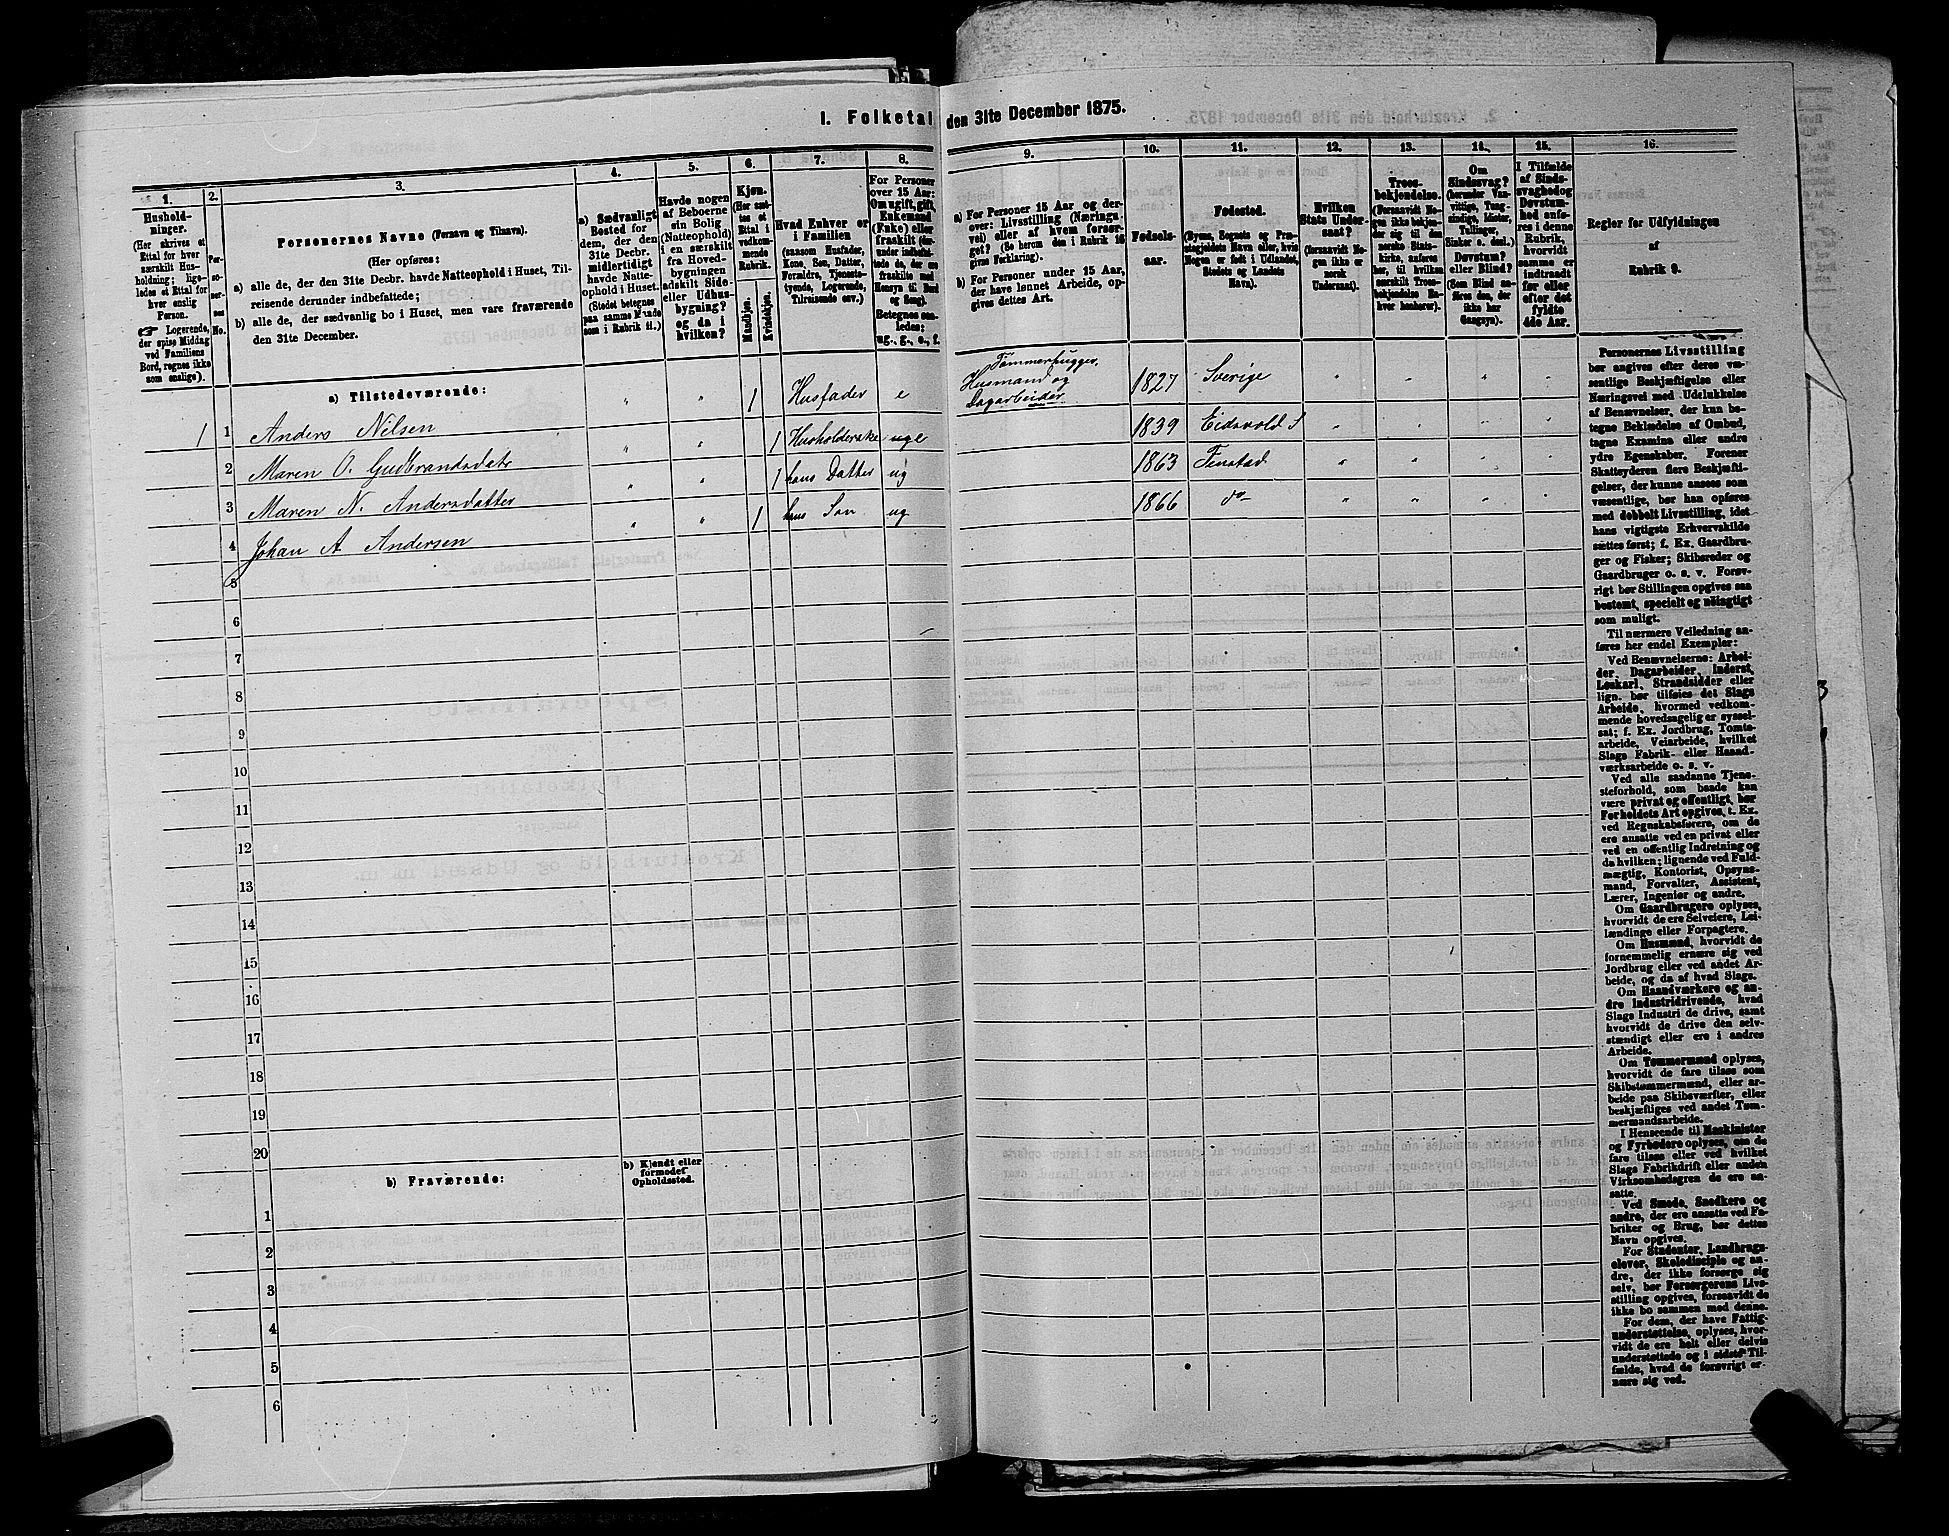 I. Folketal den 31te December 1875.
1. 2. 3. 4. 5. 6. 7. 8. 9. 10. 11. 12. 13. 14. 15. 16.
Hushold-
ninger.
(Her skrives et
Ettal for hver
særskilt Hus-
holdning; lige-
ledes et Ettal for
hver enslig
Person.
Logerende,
der spise Middag
ved Familiens
Bord, regnes ikke
som enslige).
Personernes Navne (Fornavn og Tilnavn).
(Her opføres:
a) alle de, der den 31te Decbr. havde Natteophold i Huset, Til-
reisende derunder indbefattede;
b) alle de, der sædvanlig bo i Huset, men vare fraværende
den 31te December.
a) Sædvanligt
Bosted for
dem, der den
31te Decbr.
midlertidigt
havde Natte-
ophold i Huset.
(Stedet betegnes
paa samme Maade
som i Rubrik 11.)
Havde nogen
af Beboerne
sin Bolig
(Natteophold)
i en særskilt
fra Hoved-
bygningen
adskilt Side-
eller Udhus-
bygning?
og da i
hvilken?
Kjøn.
(Her sæt-
tes et
Ettal i
vedkom-
mende
Rubrik.
Mandkjøn.
Kvindekjøn.
Hvad Enhver er
i Familien
(saasom Husfader,
Kone, Søn, Datter,
Forældre, Tjeneste-
tyende, Logerende,
Tilreisende osv.)
For Personer
over 15 Aar:
Om ugift, gift,
Enkemand
(Enke) eller
fraskilt (der-
under indbefat-
tede de, der ere
fraskilte med
Hensyn til Bord
og Seng).
Betegnes saa-
ledes:
ug., g., e., f.
a) For Personer 15 Aar og der-
over: Livsstilling (Nærings-
vei) eller af hvem forsør-
get? (Se herom den i Rubrik 16
givne Forklaring).
b) For Personer under 15 Aar,
der have lønnet Arbeide, op-
gives dettes Art.
Fødsels-
aar.
Fødested.
(Byens, Sognets og Præ-
stegjeldets Navn eller, hvis
Nogen er født i Udlandet,
Stedets og Landets
Navn).
Hvilken
Stats Under-
saat?
(forsaavidt No-
gen ikke er
norsk
Undersaat).
Troes-
bekjendelse.
(Forsaavidt No-
gen ikke bekjen-
der sig til den
norske Stats-
kirke, anføres
her, til hvilken
særskilt Troes-
bekjendelse En-
hver henhører).
Om
Sindssvag?
(herunder Van-
vittige, Tung-
sindige, Idioter,
Tullinger,
Sinker o. desl.)
Døvstum?
eller Blind?
(Som Blind an-
føres den, der
ikke har
Gangsyn).
I Tilfælde
af Sinds-
svaghed og
Døvstum-
hed anfø-
res i denne
Rubrik,
hvorvidt
samme er
indtraadt
før eller
efter det
fyldte
4de Aar.
Regler for Udfyldningen
af
Rubrik 9.
a) Tilstedeværende:
Tømmerhugger.
Husmand og
Dagarbeider
1 1 Anders Nilsen " " 1 Husfader e 1827 Sverige " " " "
2 Maren O. Gudbrandsdatr " " 1 Husholderske ug 1839 Eidsvold " " " "
3 Maren N. Andersdatter " " 1 hans Datter ug 1863 Fenstad " " " "
4 Johan A Andersen " " 1 hans Søn ug 1866 do " " " "
5
6
7
8
9
10
11
12
13
14
15
16
17
18
19
20
b) Fraværende:
b) Kjendt eller
formodet
Opholdssted.
1
2
3
4
5
6
Personernes Livsstilling
bør angives efter deres væ-
sentlige Beskjæftigelse eller
Næringsvei med Udelukkelse
af Benævnelser, der kun be-
tegne Beklædelse af Ombud,
tagne Examina eller andre
ydre Egenskaber. Forener
Skatteyderen flere Beskjæfti-
gelser, der kunne ansees som
væsentlige, bør han opføres
med dobbelt Livsstilling, idet
hans vigtigste Erhvervskilde
sættes først; f. Ex. Gaardbru-
ger og Fisker; Skibsreder og
Gaardbruger o. s. v. Forøv-
rigt bør Stillingen opgives saa
bestemt, specielt og nøiagtigt
som muligt.
Til nærmere Veiledning an-
føres her endel Exempler:
Ved Benævnelserne: Arbei-
der, Dagarbeider, Inderst,
Løskarl, Strandsidder eller
lign. bør tilføies det Slags
Arbeide, hvormed vedkom-
mende hovedsagelig er syssel-
sat; f. Ex. Jordbrug, Tomte-
arbeide, Veiarbeide, hvilket
Slags Fabrik- eller Haand-
værksarbeide o. s. v.
Ved alle saadanne Tjene-
steforhold, som baade kan
være privat og offentligt, bør
Forholdets Art opgives, t. Ex.
ved Regnskabsførere, om de
ere ansatte ved en privat eller
ved en offentlig Indretning og
da hvilken; lignende ved Fuld-
mægtig, Kontorist, Opsyns-
mand, Forvalter, Assistent,
Lærer, Ingeniør og andre.
Om Gaardbrugere oplyses,
hvorvidt de ere Selveiere, Lei-
lændinge eller Forpagtere.
Om Husmænd, hvorvidt de
fornemmelig ernære sig ved
Jordbrug eller ved andet Ar-
beide, og da af hvad Slags.
Om Haandværkere og an-
dre Industridrivende, hvad
Slags Industri de drive, samt
hvorvidt de drive den selv-
stændigt eller ere i andres
Arbeide.
Om Tømmermænd oplyses,
hvorvidt de fare tilsøs som
Skibstømmermænd, eller ar-
beide paa Skibsværfter, eller
beskjæftiges ved andet Tøm-
mermandsarbeide.
I Henseende til Maskinister
og Fyrbødere oplyses, om de
fare tilsøs eller ved hvilket
Slags Fabrikdrift eller anden
Virksomhed de ere an-
satte.
Ved Smede, Snedkere og
andre, der ere ansatte ved Fa-
briker og Brug, bør dettes
Navn opgives.
For Studenter, Landbrugs-
elever, Skoledisciple og an-
dre, der ikke forsørge sig
selv, bør Forsørgerens Livs-
stilling opgives, forsaavidt de
ikke bo sammen med denne.
For dem, der have Fattig-
understøttelse, oplyses, hvor-
vidt de ere helt eller delvis
understøttede og i sidste Til-
fælde, hvad de forøvrigt er-
nære sig ved.